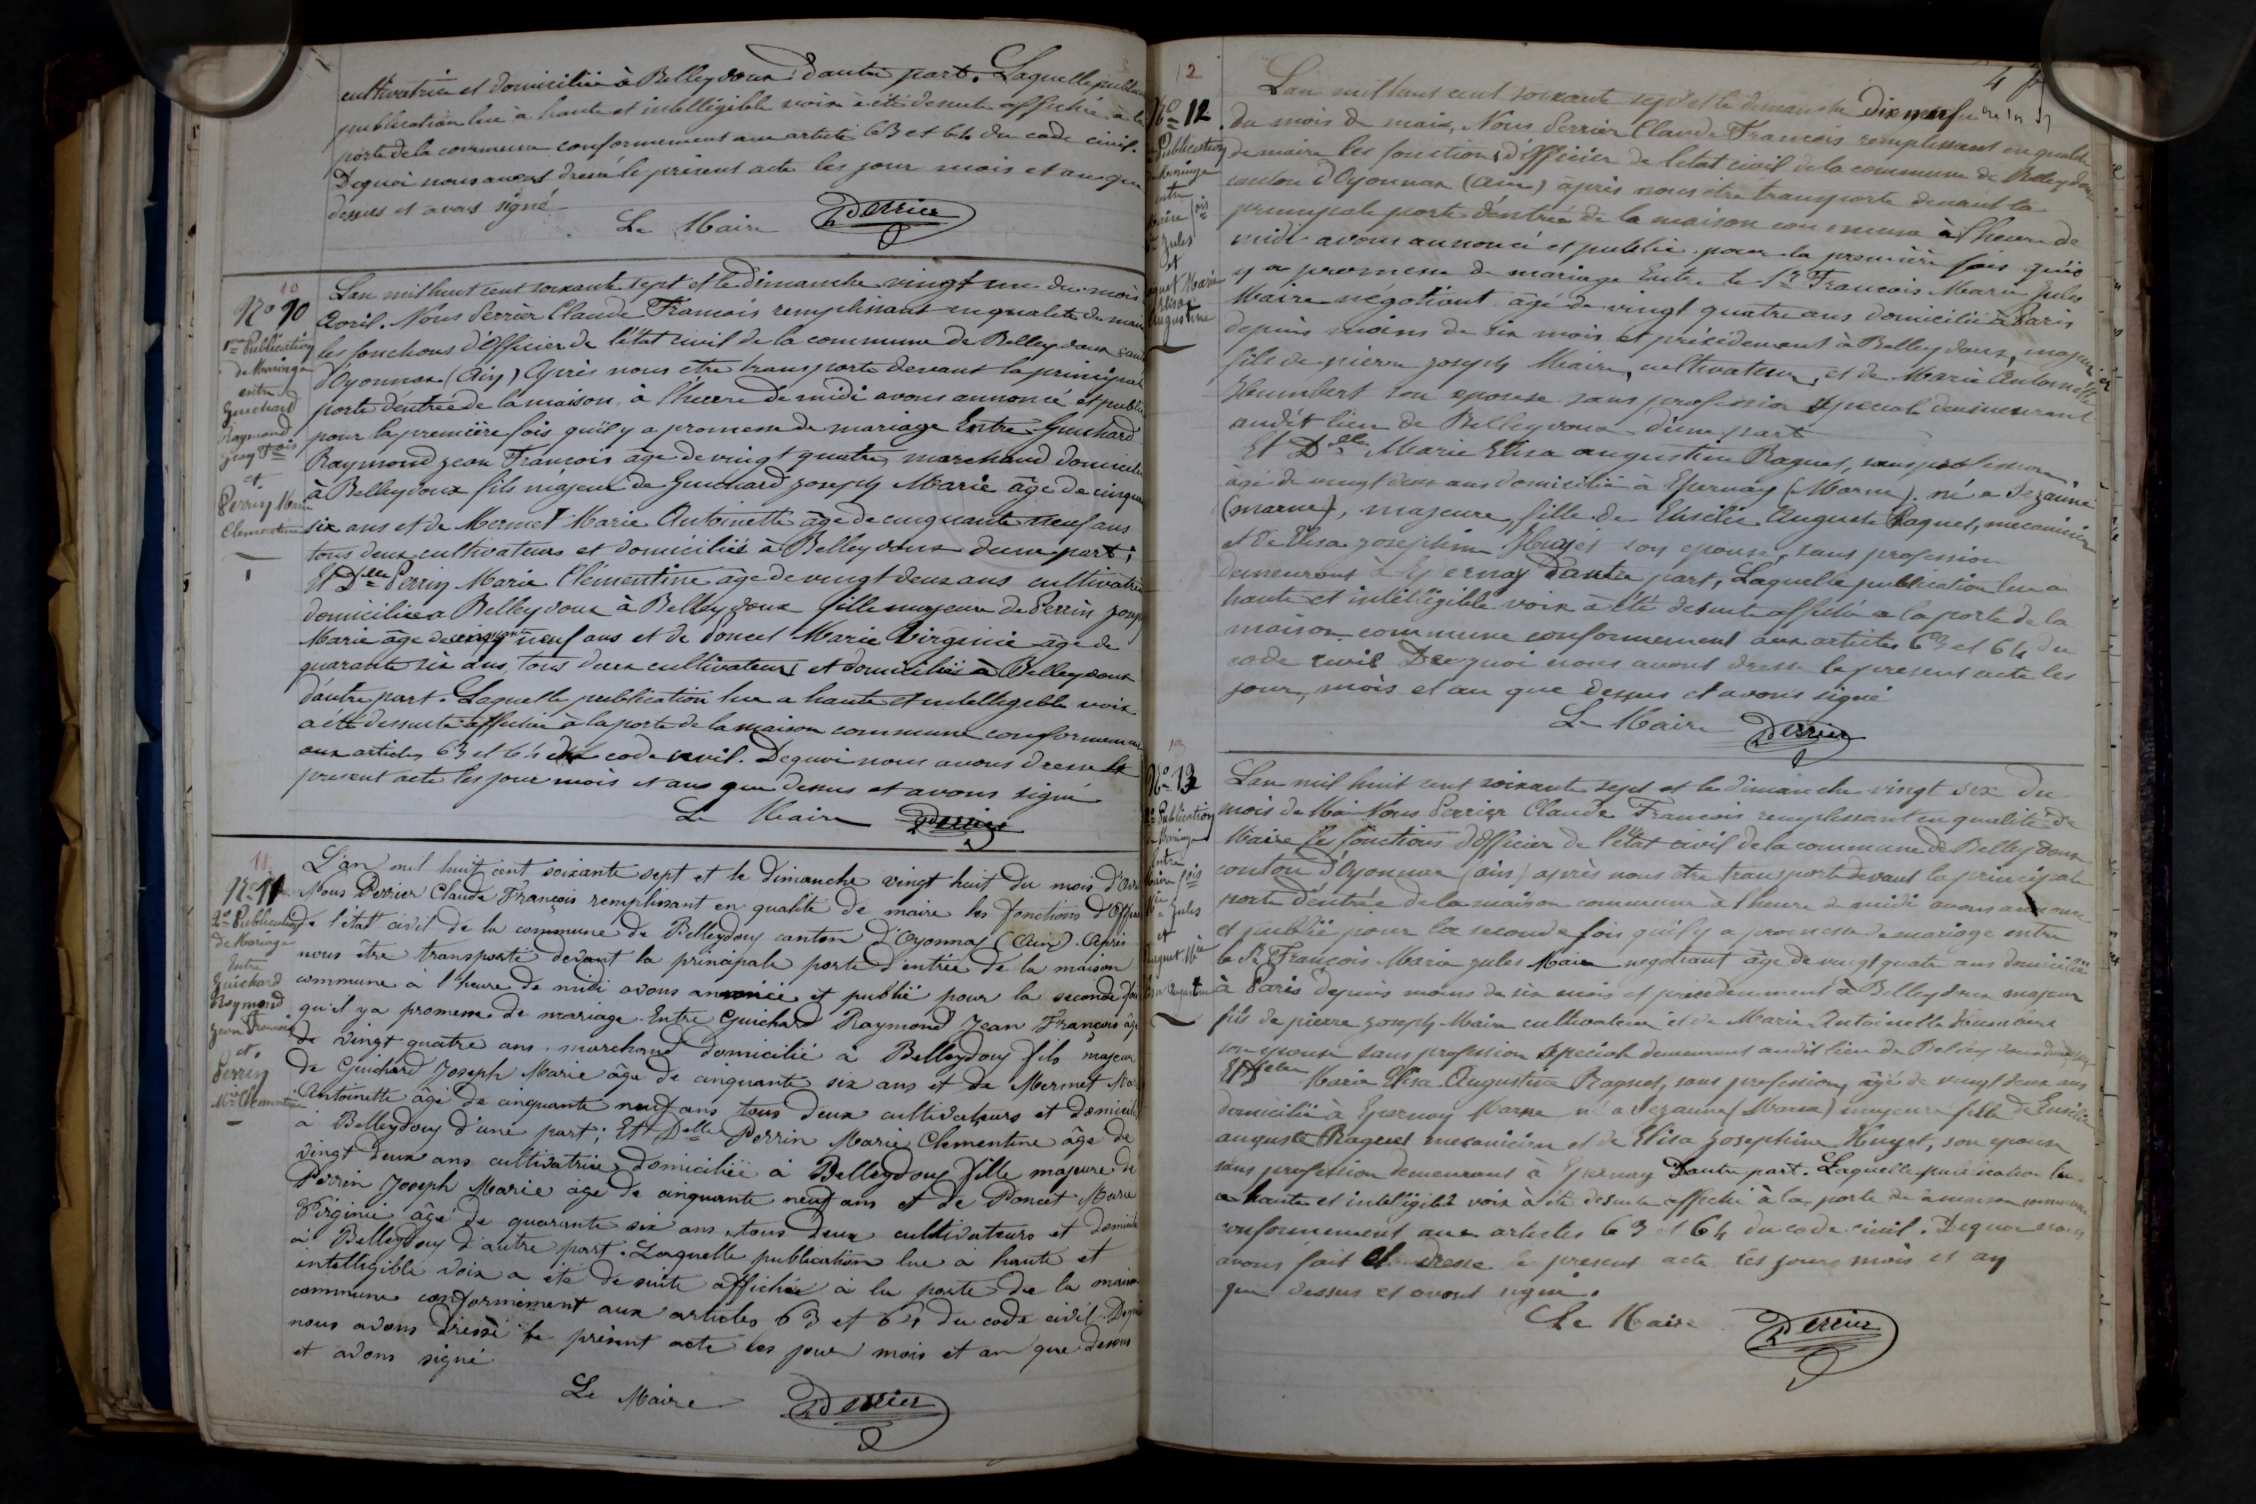 cultivatrice et domiciliée à Belleydoux d'autre part. Laquelle
publication lue à haute et intelligible voix a été desuite affichée à la
porte de la commune conformement aux articles 63 et 64 du code civil.
Dequoi nous avons dressé le présent acte les jour mois et an que
dessus et avons signé
Le Maire Perrier
10
No 10
1re Publication
de Mariage
entre
Guichard
Raymond
Jean Fois
et
Perrin Marie
Clementine
L'an mil huit cent soixante sept et le dimanche vingt un du mois
Avril. Nous Perrier Claude Francois remplissant en qualité de maire
les fonctions d'Officier de l'état civil de la commune de Belleydoux canton
d'Oyonnax (Ain) Après nous etre transporté devant la principale
porte d'entrée de la maison à l'heure de midi avons annoncé et publié
pour la première fois qu'il y a promesse de mariage Entre Guichard
Raymond Jean François âgé de vingt quatre, marchand domicilié
à Belleydoux fils majeur de Guichard Joseph Marie âgé de cinquante
six ans et de Mermet Marie Antoinette âgé de cinquante neuf ans
tous deux cultivateurs et domiciliés à Belleydoux d'une part;
Et Delle Perrin Marie Clémentine âgé de vingt deux ans cultivatrice
domiciliée a Belleydoux à Belleydoux fille majeure de Perrin Joseph
Marie âgé de cinquante neuf ans et de Poncet Marie Virginie âgé de
quarante six ans, tous deux cultivateurs et domiciliés à Belleydoux
d'autre part. Laquelle publication lue a haute et intelligible voix
a été desuite affichée à la porte de la maison commune conformement
aux articles 63 et 64 du code civil. Dequoi nous avons dressé le
present acte les jour mois et an que dessus et avons signé
Le Maire Perrier
11
No 11
2e Publication
de Mariage
Entre
Guichard
Reymond
Jean François
et
Perrin
Mie Clementine
L'an mil huit cent soixante sept et le dimanche vingt huit du mois d'Avril
Nous Perrier Claude François remplissant en qualité de maire les fonctions d'Officier
de l'état civil de la commune de Belleydoux canton d'Oyonnax (Ain). Après
nous être transporté devant la principale porte d'entrée de la maison
commune à l'heure de midi avons annoncé et publié pour la seconde fois
qu'il y a promesse de mariage. Entre Guichard Raymond Jean François âgé
de vingt quatre ans. marchand domicilié à Belleydoux fils majeur
de Guichard Joseph Marie âgé de cinquante six ans et de Mermet Marie
Antoinette âgé de cinquante neuf ans tous deux cultivateurs et domiciliés
à Belleydoux d'une part; Et Delle Perrin Marie Clementine âgé de
vingt deux ans cultivatrice domiciliée à Belleydoux fille majeure de
Perrin Joseph Marie âgé de cinquante neuf ans et de Poncet Marie
Virginie âgé de quarante six ans, tous deux cultivateurs et domiciliés
à Belleydoux d'autre part. Laquelle publication lue à haute et
intelligible voix a été de suite affichée à la porte de la maison
commune conformément aux articles 63 et 64 du code civil. Dequoi
nous avons dressé le présent acte les jour mois et an que dessus
et avons signé
Le Maire Perrier
12
No 12
Publication
de Mariage
entre
Maire fois
Jules
et
Raguet Marie
Elisa
Augustine
L'an mil huit cent soixante sept et le dimanche Dix neuf
du mois de mai, Nous Perrier Claude Francois remplissant en qualité
de maire les fonctions d'officier de l'etat civil de la commune de Belleydoux
canton d'Oyonnax (Ain) après nous etre transporté devant la
principale porte d'entrée de la maison commune à l'heure de
midi avons annoncé et publié pour la première fois qu'il
y a promesse de mariage Entre le Sr Francois Marie Jules
Maire négotiant âgé de vingt quatre ans domicilié à Paris
depuis moins de six mois et précédemment à Belleydoux, majeur
fils de pierre Joseph Maire, cultivateur, et de Marie Antoinette
Humbert son epouse sans profession special demeurant
audit lieu de Belleydoux d'une part
Et Delle Marie Elisa augustine Raguet, sans profession
âgé de vingt deux ans domicilié à Epernay (Marne) né a Sezanne
(marne), majeure, fille de Eusèbie Auguste Raguet, mecanicien
et de Elisa Josephine Huget son epouse, sans profession
demeurant à Epernay D'autre part, Laquelle publication lue a
haute et intelligible voix à été desuite affiché a la porte de la
maison commune conformement aux articles 63 et 64 du
code civil Dequoi nous avons dressé le present acte les
jour, mois et an que dessus et avons signé
Le Maire Perrier
13
No 13
2e Publication
de Mariage
Entre
Maire fois
Jules
et
Raguet Mie
Elisa Augustine
L'an mil huit cent soixante sept et le dimanche vingt six du
mois de Mai Nous Perrier Claude Francois remplissant en qualité de
Maire les fonctions d'Officier de l'état civil de la commune de Belleydoux
canton d'Oyonnax (ain) après nous être transporté devant la principale
porte d'entrée de la maison commune à l'heure de midi avons annoncé
et publié pour la seconde fois qu'il y a promesse de mariage entre
le Sr François Marie Jules Maire negotiant âgé de vingt quatre ans domicilié
à Paris depuis moins de six mois et précédemment à Belleydoux majeur
fils de pierre Joseph Maire cultivateur et de Marie Antoinette Humbert
son epouse sans profession special demeurant audit lieu de Belleydoux
Et Delle Marie Elisa Augustine Raguet, sans profession, âgé de vingt deux ans
domicilié à Epernay Marne né a Sezanne (Marne) majeure fille de Eusèbie
auguste Raguet mecanicien et de Elisa Josephine Huget, son epouse
sans profession demeurant à Epernay D'autre part. Laquelle publication lue
a haute et intelligible voix à été desuite affiché à la porte de la maison commune
conformement aux articles 63 et 64 du code civil. Dequoi nous
avons fait et dressé le present acte les jours mois et an
que dessus et avons signé.
Le Maire Perrier